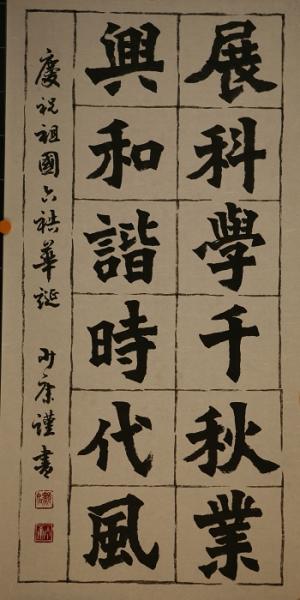 展科學千秋業
興和諧時代風
慶祝祖國六秩華誕 康謹書